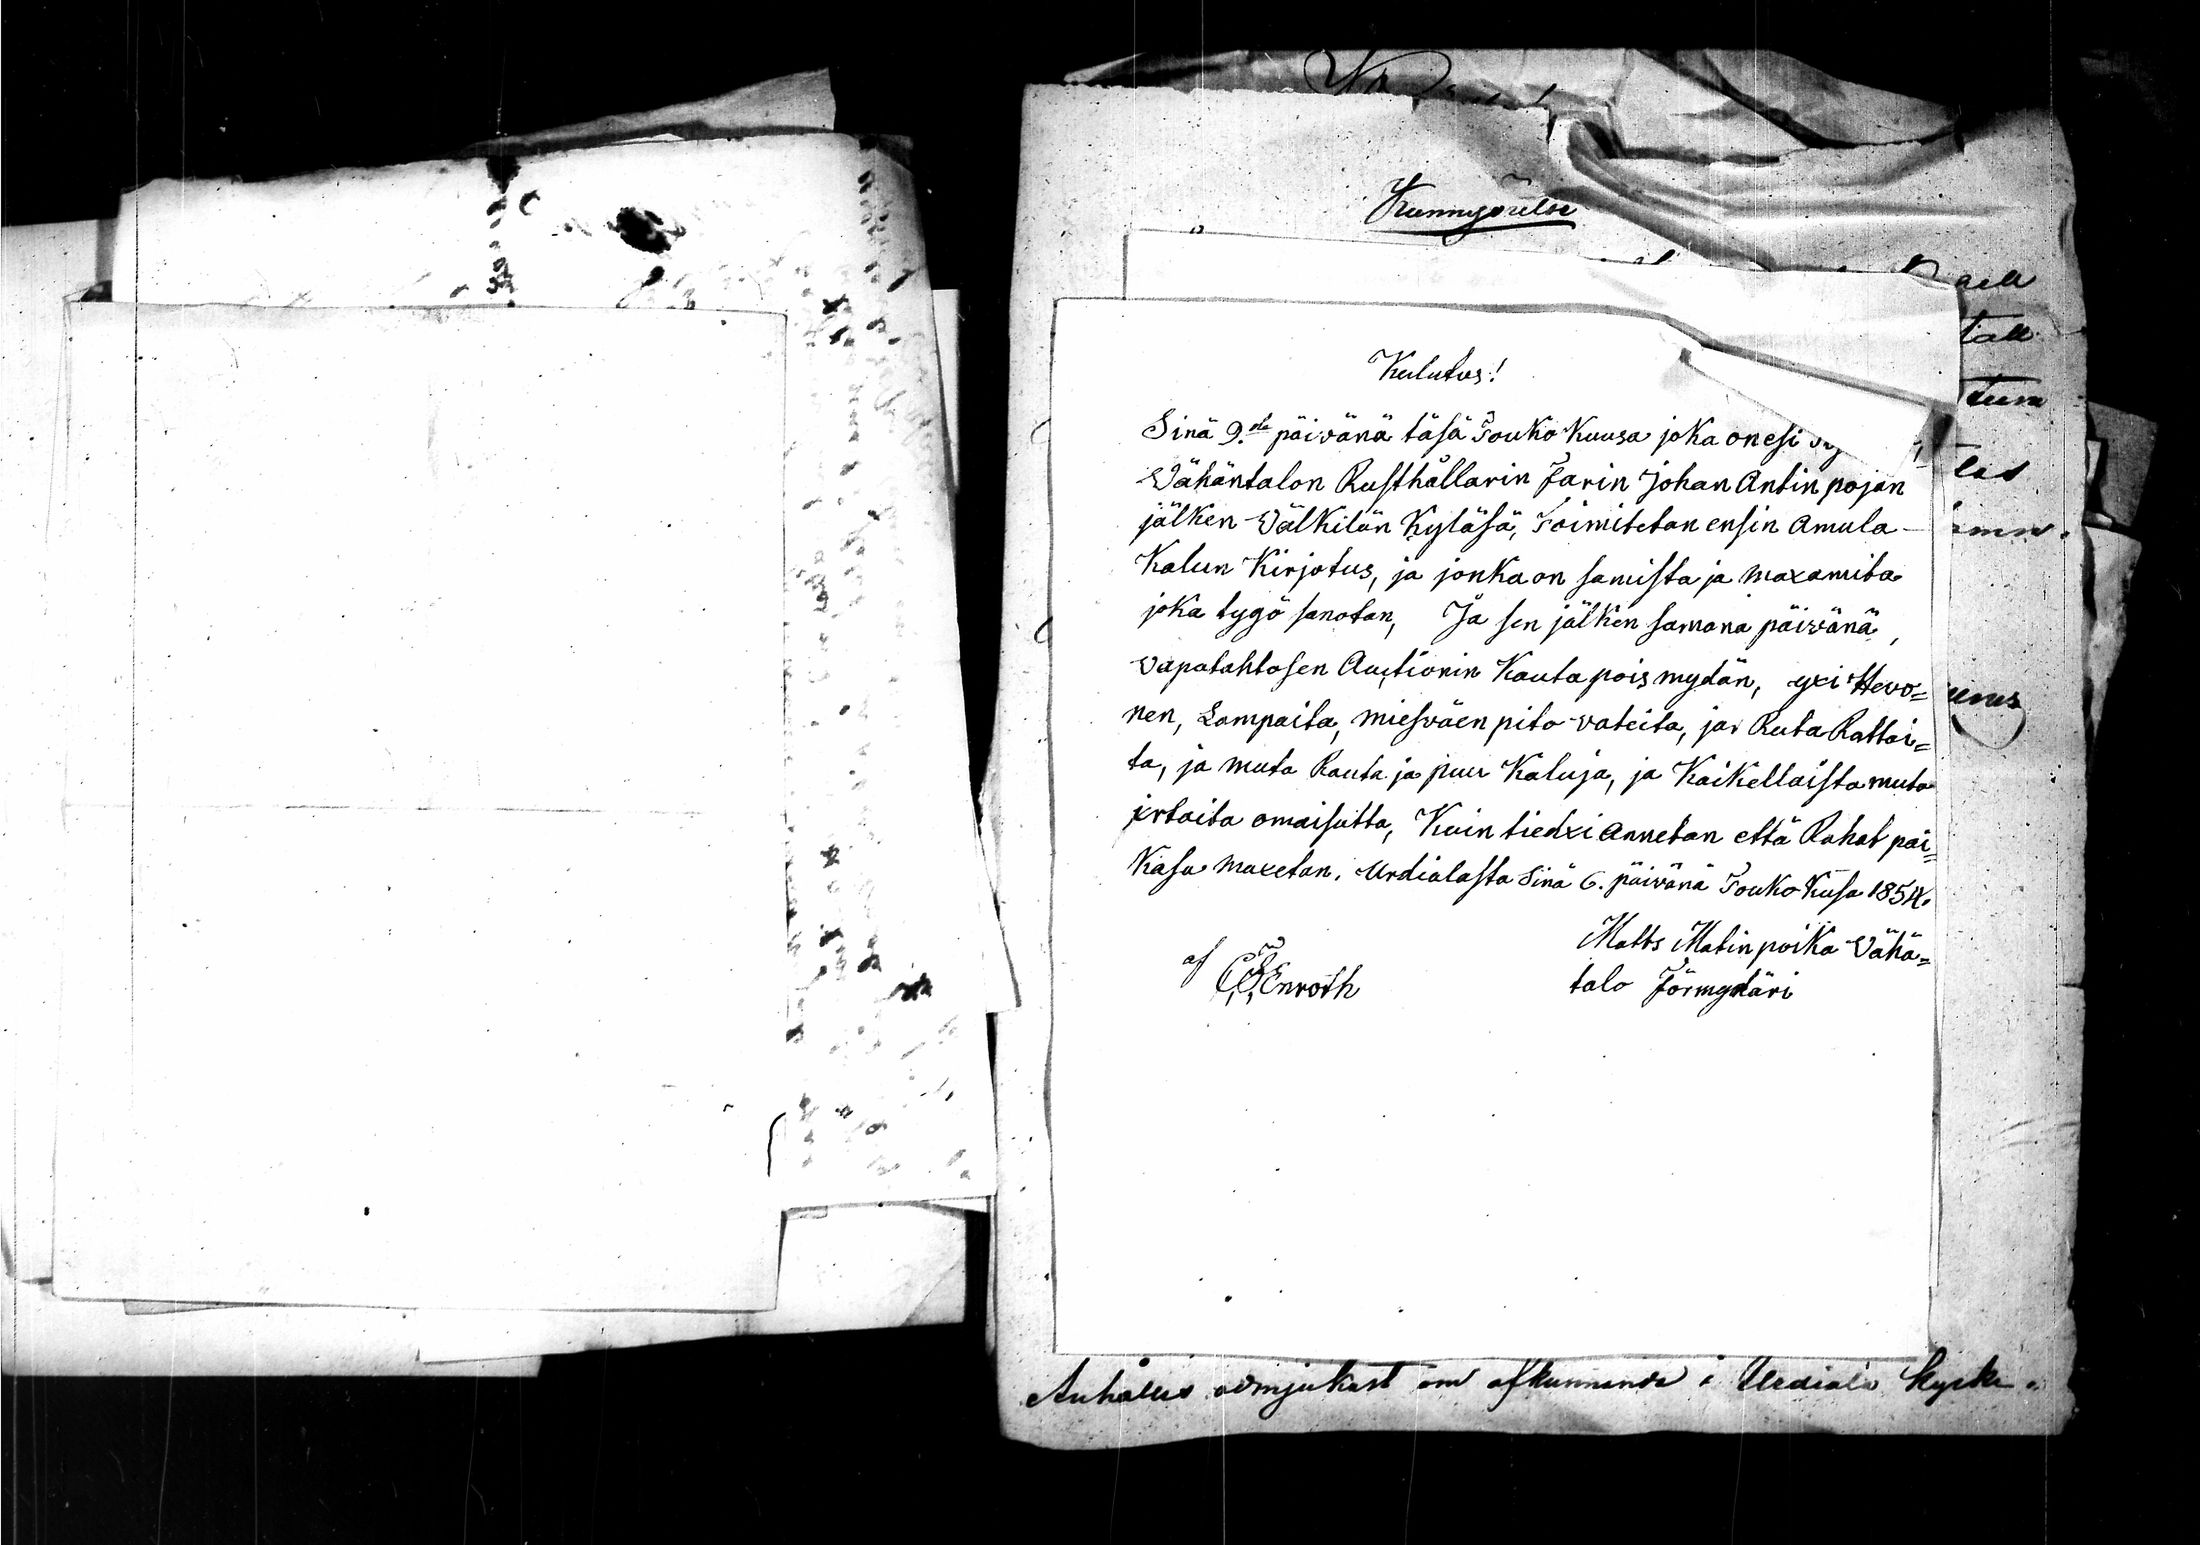 Kunngörelse
Kulutus!
Sinä 9.de päivänä täsä Touko Kuusa joka on esi
Wähäntalon Rusthållarin Farin Johan Antin pojan
jälken Wälkilän Kyläsä, Toimitetan ensin Amula
Kalun Kirjotus, ja jonka on samista ja maxamita
joka tygö sanotan, Ja sen jälken samana päivänä,
vapatahtosen Auctionin Kauta pois mydän, yxi Hevo=
nen, Lampaita, miesväen pito vateita, ja Ruta Rattai=
ta, ja muta Rauta ja puu Kaluja, ja Kaikellaista muta
irtaita omaisutta, Kuin tiedxi annetan että Rahat pai=
Kasa maxetan. Urdialasta Sinä 6. päivänä Touko Kusa 1854.
Matts Matin poika Wähä=
af C,G,Enroth
talo Förmyndäri
tall
tum
unus
Anhålles ödmjukast om afkunnande i Urdiala kyrka.